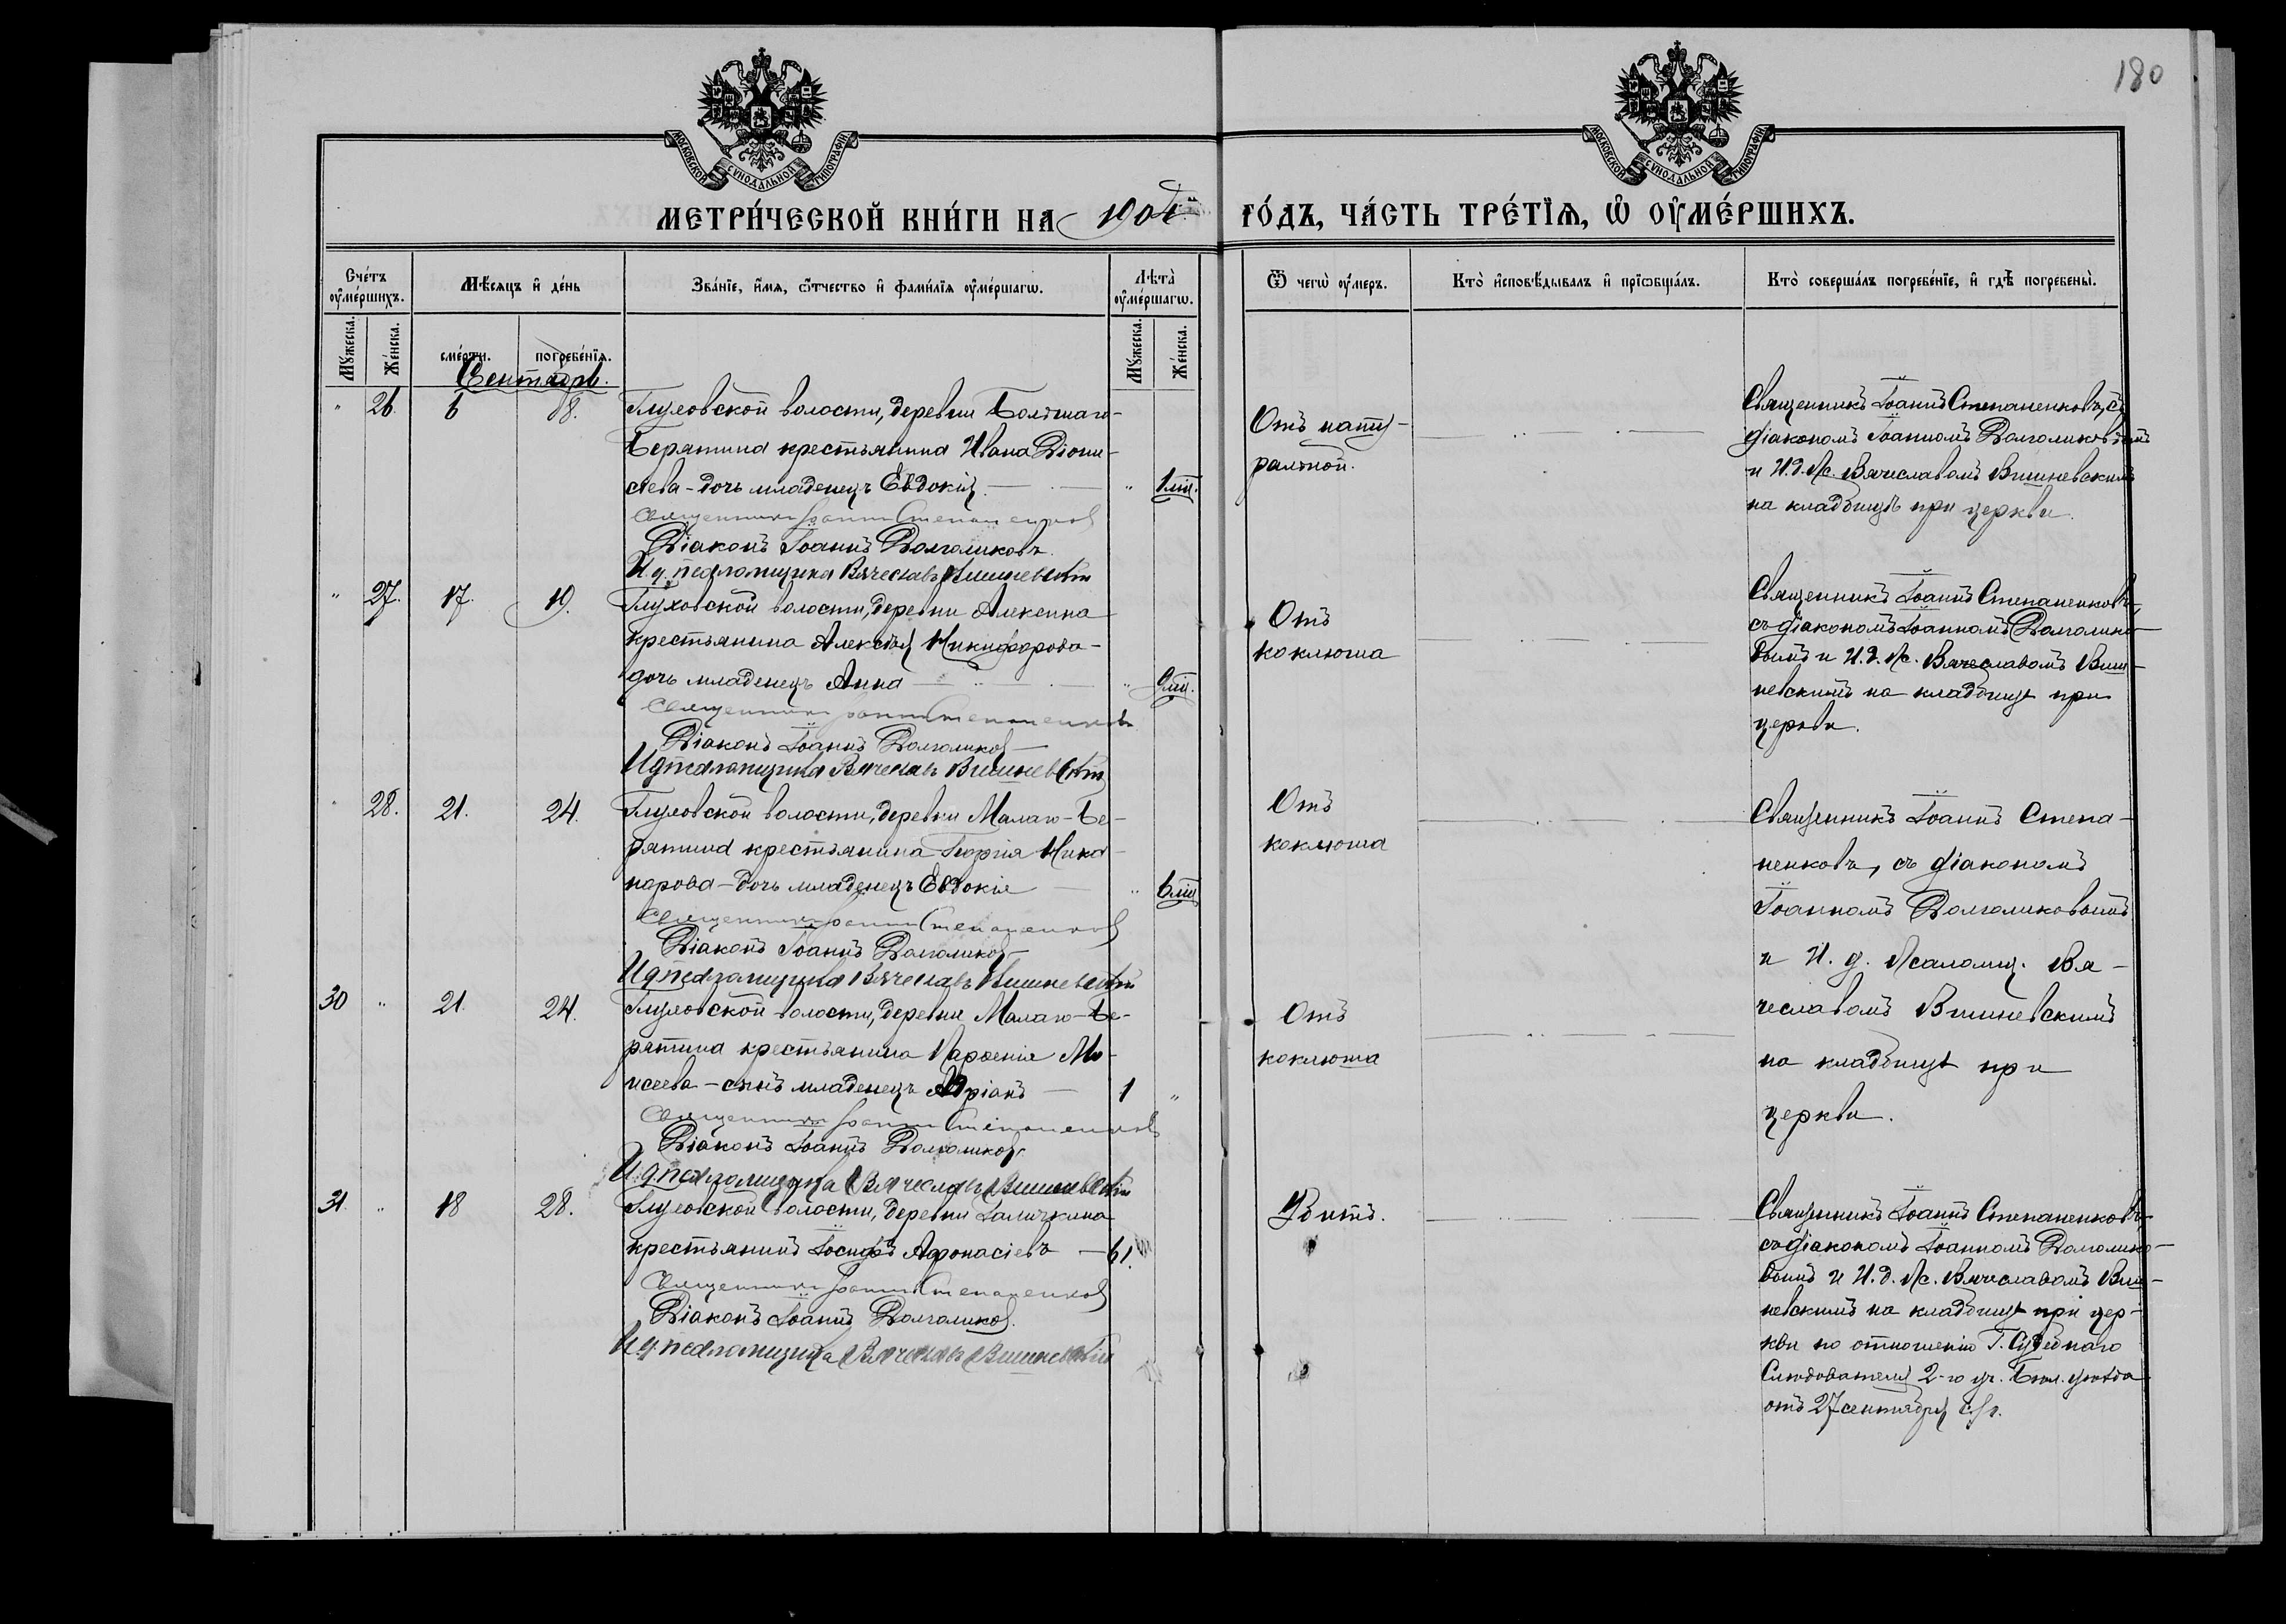 180
МОСКОВСКОЙ СѴНОДАЛЬНОЙ ТИПОГРАФІИ
МОСКОВСКОЙ СѴНОДАЛЬНОЙ ТИПОГРАФІИ
МЕТРИ́ЧЕСКОЙ КНИ́ГИ НА 1904 й
ГО́ДЪ, ЧА́СТЬ ТРЕ́ТІѦ, Ѡ҆ ОУ҆МЕ́РШИХЪ.
Сче́тъ оу҆ме́ршихъ.
Мѣ́сяцъ и҆ де́нь
Зва́нїе, и҆́мя, ѻ҆́тчество и҆ фами́лїя оу҆ме́ршагѡ.
Лѣ́та оу҆ме́ршагѡ.
Ѿ чегѡ̀ оу҆́меръ.
Кто̀ и҆сповѣ́дывалъ и҆ прїѡбща́лъ.
Кто̀ соверша́лъ погребе́нїе, и҆ гдѣ̀ погребены̀.
Мꙋ́жеска. Же́нска. сме́рти. погребе́нїя. Мꙋ́жеска. Же́нска.
Сентябрь.
" 26. 6 8. Глуховской волости, деревни Большаго-
Берятина крестьянина Ивана Діони-
сіева - дочь младенецъ Евдокія. " 1 мѣс.
Священникъ Іоаннъ Степаненковъ
Діаконъ Іоаннъ Долголиковъ.
И. д. псаломщика Вячеславъ Вишневскій
Отъ нату-
ральной.
Священникъ Іоаннъ Степаненковъ, съ
діакономъ Іоанномъ Долголиковымъ
и И. д. Пс. Вячеславомъ Вишневскимъ
на кладбищѣ при церкви.
" 27. 17. 19. Глуховской волости, деревни Алексина
крестьянина Алексѣя Никифорова-
дочь младенецъ Анна " 9 мѣс.
Священникъ Іоаннъ Степаненковъ
Діаконъ Іоаннъ Долголиков
И д псаломщика Вячеславъ Вишневскій
Отъ
коклюша
Священникъ Іоаннъ Степаненковъ,
съ діакономъ Іоанномъ Долголико-
вымъ и И. д. Пс. Вячеславомъ Виш-
невскимъ на кладбищѣ при
церкви.
" 28. 21. 24. Глуховской волости, деревни Малаго-Бе-
рятина крестьянина Георгія Ника-
норова - дочь младенецъ Евдокія " 6 мѣс
Священникъ Іоаннъ Степаненков
Діаконъ Іоаннъ Долголиков
И д псаломщика Вячеславъ Вишневскій
Отъ
коклюша
Священникъ Іоаннъ Степа-
ненковъ, съ діакономъ
Іоанномъ Долголиковымъ
и И. д. Псаломщ. Вя-
чеславомъ Вишневскимъ
на кладбищѣ при
церкви.
30 " 21. 24. Глуховской волости, деревни Малаго-Бе-
рятина крестьянина Парѳенія Мо-
исеева - сынъ младенецъ Адріанъ 1 "
Священникъ Іоаннъ Степаненков
Діаконъ Іоаннъ Долголиков
И. д. псаломщика Вячеславъ Вишневскій
Отъ
коклюша
31. " 18 28. Глуховской волости, деревни
крестьянинъ Іосифъ Афонасіевъ - 61.
Священникъ Іоаннъ Степаненков
Діаконъ Іоаннъ Долголиков.
И. д. псаломщика Вячеславъ Вишневскій
Убитъ.
Священникъ Іоаннъ Степаненковъ
съ діакономъ Іоанномъ Долголико-
вымъ и И. д. Пс. Вячеславомъ Виш-
невскимъ на кладбищѣ при цер-
кви по отношенію Г. Судебнаго
Слѣдователя 2-го уч. уѣзда
отъ 27 сентября с. г.